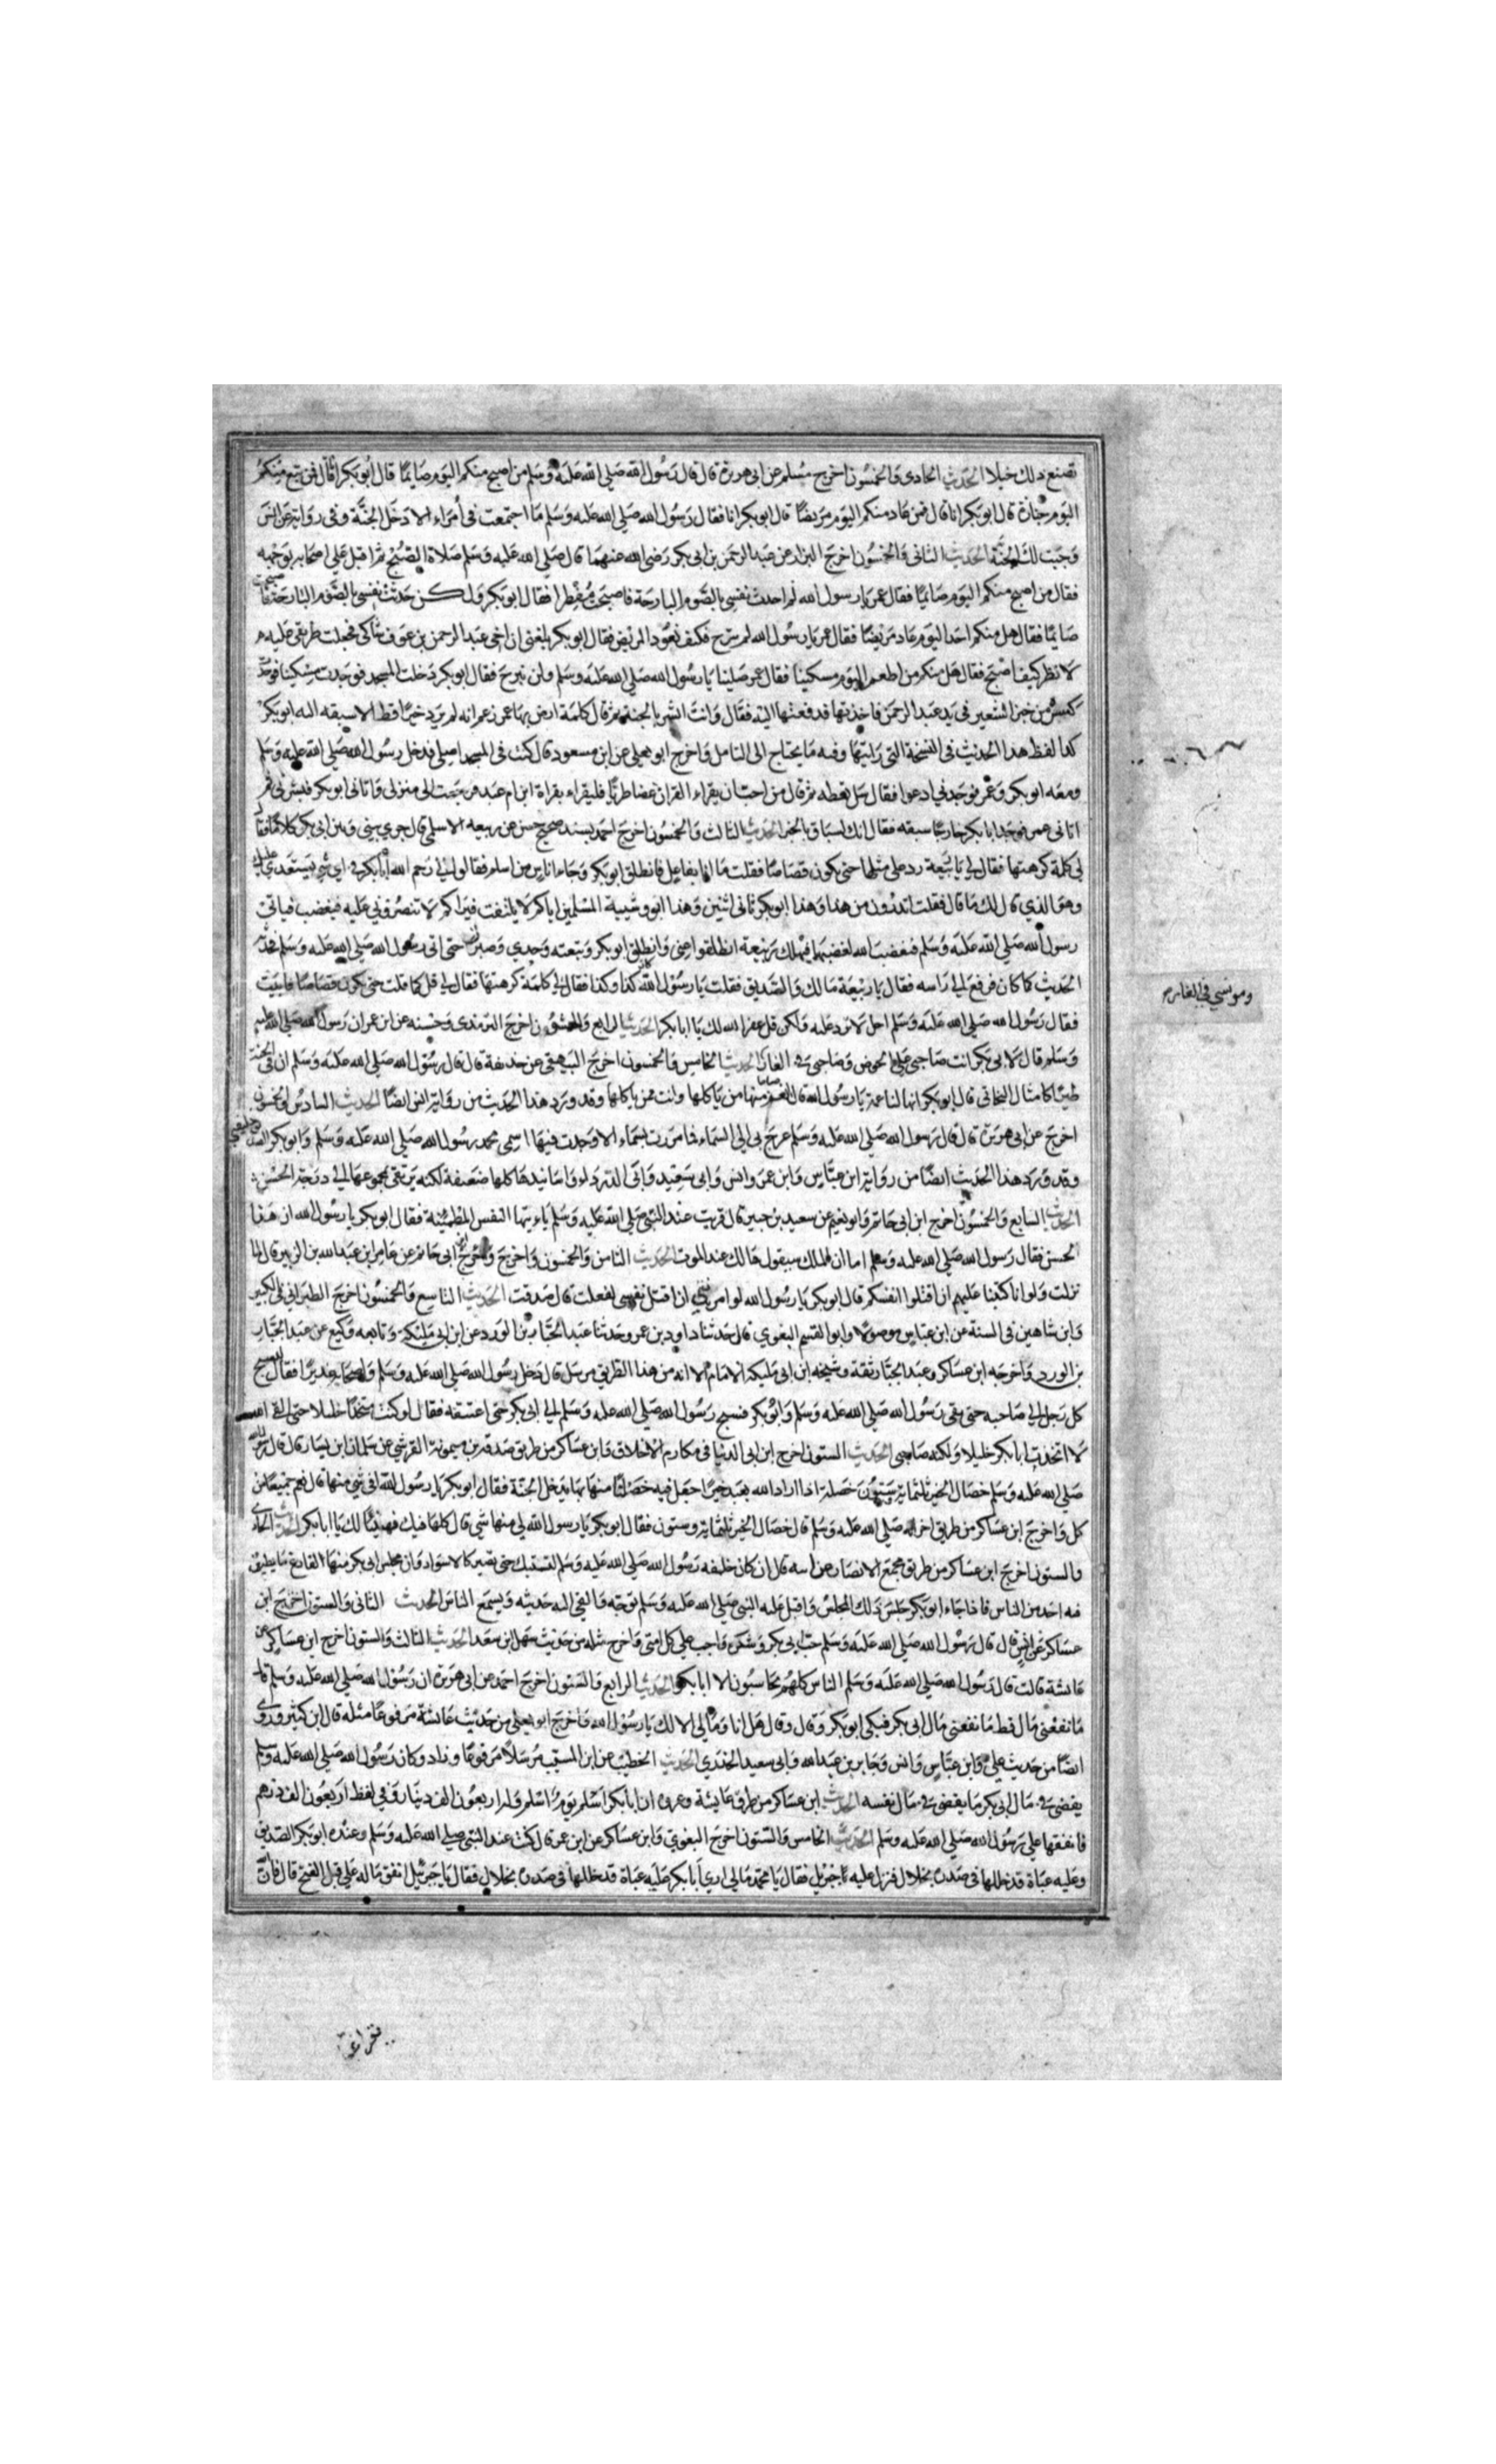 تصنع ذلك خيلا الحديث الحادى والخمسون اخرج مسلم عن ابى هريرة قال قال رسول الله صلى الله عليه وسلم من اصبح منكم اليوم صايما قال ابو بكر انا قال فمن تبع منكم
اليوم جنازة قال ابو بكر انا قال فمن عاد منكم اليوم مريضا قال ابو بكر انا فقال رسول الله صلى الله عليه وسلم ما اجتمعت فى امراء الا دخل الجنة وفى رواية عن انس
وجبت لك الجنة الحديث الثانى والخمسون اخرج البزار عن عبد الرحمن بن ابى بكر رضى الله عنهما قال صلى الله عليه وسلم صلاة الصبح ثم اقبل على اصحابه بوجهه
فقال من اصبح منكم اليوم صايما فقال عمر يا رسول الله لم احدث نفسى بالصوم البارحة فاصبحت مفطرا فقال ابو بكر ولكن حدثت نفسى بالصوم البارحة فاصبحت
صايما فقال هل منكم احد اليوم عاد مريضا فقال عمر يا رسول الله لم نبرح فكيف نعود المريض فقال ابو بكر بلغنى ان اخى عبد الرحمن بن عوف شاكى فجعلت طريقى عليه
لانظر كيف اصبح فقال هل منكم من اطعم اليوم مسكينا فقال عمر صلينا يا رسول الله صلى الله عليه وسلم ولن نبرح فقال ابو بكر دخلت المسجد فوجدت مسكينا فوجد
كسرة من خبز الشعير فى يد عبد الرحمن فاخذتها قد فعتها اليه فقال وانت ابشر بالجنة ثم قال كلمة ارضى بها عمر زعم انه لم يرد خيرا قط الا سبقه اليه ابو بكر
كذا لفظ هذا الحديث فى النسخة التى رايتها وفيه ما يحتاج الى التامل واخرج ابو يعلى عن ابن مسعود قال كنت فى المسجد اصلى فدخل رسول الله صلى الله عليه وسلم
ومعه ابو بكر وعمر فوجدنى ادعوا فقال سل تعطه ثم قال من احب ان يقراء القران غضا طريا فليقراء بقراة ابن ام عبد فرجعت الى منزلى واتانى ابو بكر فبشرنى ثم
اتانى عمر فوجد ابا بكر خارجا سبقه فقال انك لسباق بالخير الحديث الثالث والخمسون اخرج احمد بسند صحيح حسن عن ربيعه الاسلمى قال جرى بينى وبين ابى بكر كلاما فقال
لى كلمة كرهتها فقال لى يا ربيعة رد على مثلها حتى يكون قصاصا فقلت ما انا بفاعل فانطلق ابو بكر وجاء اناس من اسلم فقالو الى رحم الله ابا بكر فى اى شى يستعدى عليك
وهو الذى قال لك ما قال فقلت اتدرون من هذا هذا ابو بكر ثانى اثنين وهذا ابو وشيبة المسلمين اياكم لا يلتفت فيراكم لا تنصرونى عليه فيغضب فياتى
رسول الله صلى الله عليه وسلم فيغضب الله لغضبهما فيهلك ربيعة انطلقوا عنى وانطلق ابو بكر وتبعته وحدى حتى اتى رسول الله صلى الله عليه وسلم فحدثه
الحديث كما كان فرفع الى راسه فقال يا ربيعة مالك والصديق فقلت يا رسول الله كان كذا وكذا فقال لى كلمة كرهتها فقال لى قل كما قلت حتى يكون قصاصا فابيت
فقال رسول الله صلى الله عليه وسلم اجل لا ترد عليه ولكن قل غفر الله لك يا ابا بكر الحديث الرابع والخمسون اخرج الترمذى وحسنه عن ابن عمر ان رسول الله صلى الله عليه
وسلم قال لابى بكر انت صاحبى على الحوض وصاحبى فى الغار الحديث الخامس والخمسون اخرج البيهقى عن حذيفة قال قال رسول الله صلى الله عليه وسلم ان فى الجنة
طيرا كامثال البخاتى قال ابو بكر انها لناعمة يا رسول الله قال انعم منها من ياكلها وانت ممن ياكلها وقد ورد هذا الحديث من رواية انس ايضا الحديث السادس والخمسون
اخرج عن ابى هريرة قال قال رسول الله صلى الله عليه وسلم عرج بى الى السماء فما مررت بسماء الا وجدت فيها اسمى محمد رسول الله صلى الله عليه وسلم وابو بكر الصديق خليفتى
وقد ورد هذا الحديث ايضا من رواية ابن عباس وابن عمر وانس وابى سعيد وابى الدرداء واسانيدها كلها ضعيفة لكنه يرتقى بمجموعها الى درجة الحسن
الحديث السابع والخمسون اخرج ابن ابى حاتم وابو نعيم عن سعيد بن جبير قال قريت عند النبى صلى الله عليه وسلم ياءيتها النفس المطمئنة فقال ابو بكر يا رسول الله ان هذا
الحسن فقال رسول الله صلى الله عليه وسلم اما ان الملك سيقول هالك عند الموت الحديث الثامن والخمسون واخرج ابن ابى حاتم عن عامر ابن عبد الله بن الزبير قال لما
نزلت ولو انا كتبنا عليهم ان اقتلوا انفسكم قال ابو بكر يا رسول الله لو امرتنى ان اقتل نفسى لفعلت قال صدقت الحديث التاسع والخمسون اخرج الطبرانى فى الكبير
وابن شاهين فى السنة عن ابن عباس موصولا وابو القسم البغوي قال حدثنا داود بن عمر وحدثنا عبد الجبار بن الورد عن ابن ابى مليكة وتابعه وكيع عن عبد الجبار
بن الورد واخرجه ابن عساكر وعبد الجبار ثقة وشيخه ابن ابى مليكة امام الا انه من هذا الطريق مرسل قال دخل رسول الله صلى الله عليه وسلم واصحابه غديرا فقال ليسبح
كل رجل الى صاحبه حتى بقى رسول الله صلى الله عليه وسلم وابو بكر فسبح رسول الله صلى الله عليه وسلم الى ابى بكر حتى اعتنقه فقال لو كنت متخذا خليلا حتى القى الله
لا اتخذت ابا بكر خليلا ولكنه صاحبى الحديث الستون اخرج ابن ابى الدنيا فى مكارم الاخلاق وابن عساكر من طريق صدقة بن ميمونة القرشى عن سلمان ابن يسار قال قال رسول الله
صلى الله عليه وسلم خصال الخير ثلثماية وستون خصلة اذا اراد الله بعبد خيرا جعل فيه خصلة منها بها يدخل الجنة فقال ابو بكر يا رسول الله افى شى منها قال نعم جميعا من
كل واخرج ابن عساكر من طريق اخر انه صلى الله عليه وسلم قال خصال الخير ثلثماية وستون فقال ابو بكر يا رسول الله لى منها شى قال كلها فيك فهنيئا لك يا ابا بكر الحديث الحادى
والستون اخرج ابن عساكر من طريق مجمع الانصار عن ابيه قال ان كان خليفه رسول الله صلى الله عليه وسلم لتشتبك حتى تصير كالاسوار وان مجلس ابى بكر منها الفارغ ما يطمع
فيه احد من الناس فاذا جاء ابو بكر جلس ذلك المجلس واقبل عليه النبى صلى الله عليه وسلم بوجهه والقى اليه حديثه ويسمع الناس الحديث الثانى والستون اخرج ابن
عساكر عن انس قال قال رسول الله صلى الله عليه وسلم حب ابى بكر وشكره واجب على كل امتى واخرج مثله من حديث سهل ابن سعد الحديث الثالث والستون اخرج ابن عساكر عن
عايشة قالت قال رسول الله صلى الله عليه وسلم الناس كلهم يحاسبون الا ابا بكر الحديث الرابع والستون اخرج احمد عن ابى هريرة ان رسول الله صلى الله عليه وسلم قال
ما نفعنى مال قط ما نفعنى مال ابى بكر فبكى ابو بكر وقال وقال هل انا ومالى الا لك يا رسول الله واخرج ابو يعلى من حديث عائشة مرفوعا مثله قال ابن كثير وروى
ايضا من حديث على وابن عباس وانس وجابر بن عبد الله وابى سعيد الخدري الحديث الخطيب عن ابن المسيب مرسلا مرفوعا وزاد وكان رسول الله صلى الله عليه وسلم
يقضى فى مال ابى بكر ما يقضى فى مال نفسه الحديث ابن عساكر من طرق عايشة وعروه ان ابا بكر اسلم يوم اسلم وله اربعون الف دينار وفى لفظ اربعون الف درهم
فانفقها على رسول الله صلى الله عليه وسلم الحديث الخامس والستون اخرج البغوى وابن عساكر عن ابن عمر قال كنت عند النبى صلى الله عليه وسلم وعنده ابو بكر الصديق
وعليه عباة قد خللها فى صدره بخلال فنزل عليه جبريل فقال يا محمد مالى ارى ابا بكر عليه عباة قد خللها فى صدره بخلال فقال يا جبرئيل انفق ماله على قبل الفتح قال فان
ومونسى فى الغار م